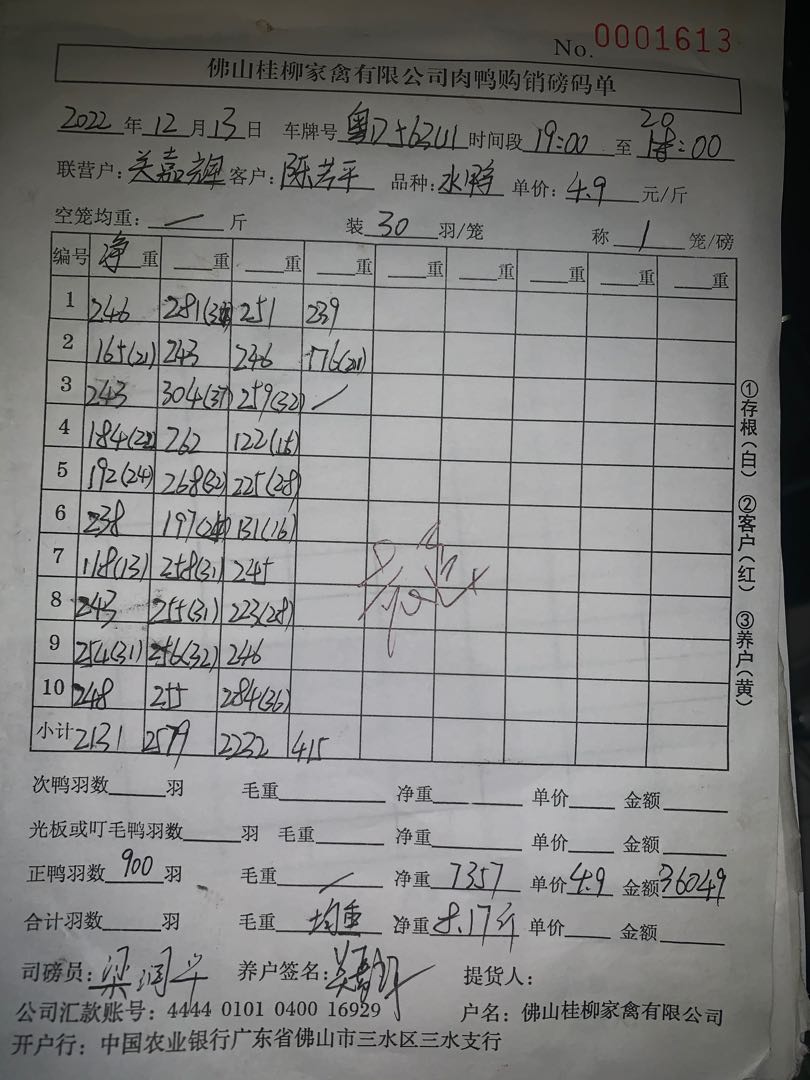 No. 0001613
佛山桂柳家禽有限公司肉鸭购销磅码单
2022 年 12 月 13 日 车牌号 粤 时间段 19:00 至 20:00
联营户: 嘉 客户: 陈若平 品种: 水鸭 单价: 4.9 元/斤
空笼均重: 一 斤 装 30 羽/笼 称 1 笼/磅
编号 净重 重 重 重 重 重 重 重 重
1 246 281 251 239
2 165(21) 243 246 176(21)
3 243 304(37) 259(32) /
4 184(22) 262 122(15)
5 192(24) 268(32) 225(28)
6 238 197 131(16)
7 118(13) 258(31) 245
8 243 255(31) 223(28)
9 254(31) 256(32) 246
10 248 255 284(36)
小计 2131 2579 2232 415
次鸭羽数 羽 毛重 净重 单价 金额
光板或叮毛鸭羽数 羽 毛重 净重 单价 金额
正鸭羽数 900 羽 毛重 / 净重 7357 单价 4.9 金额 36049
合计羽数 羽 毛重 均重 净重 8.17斤 单价 金额
司磅员: 梁润 养户签名: 提货人:
公司汇款账号: 4444 0101 0400 16929 户名: 佛山桂柳家禽有限公司
开户行: 中国农业银行广东省佛山市三水区三水支行
①存根(白) ②客户(红) ③养户(黄)